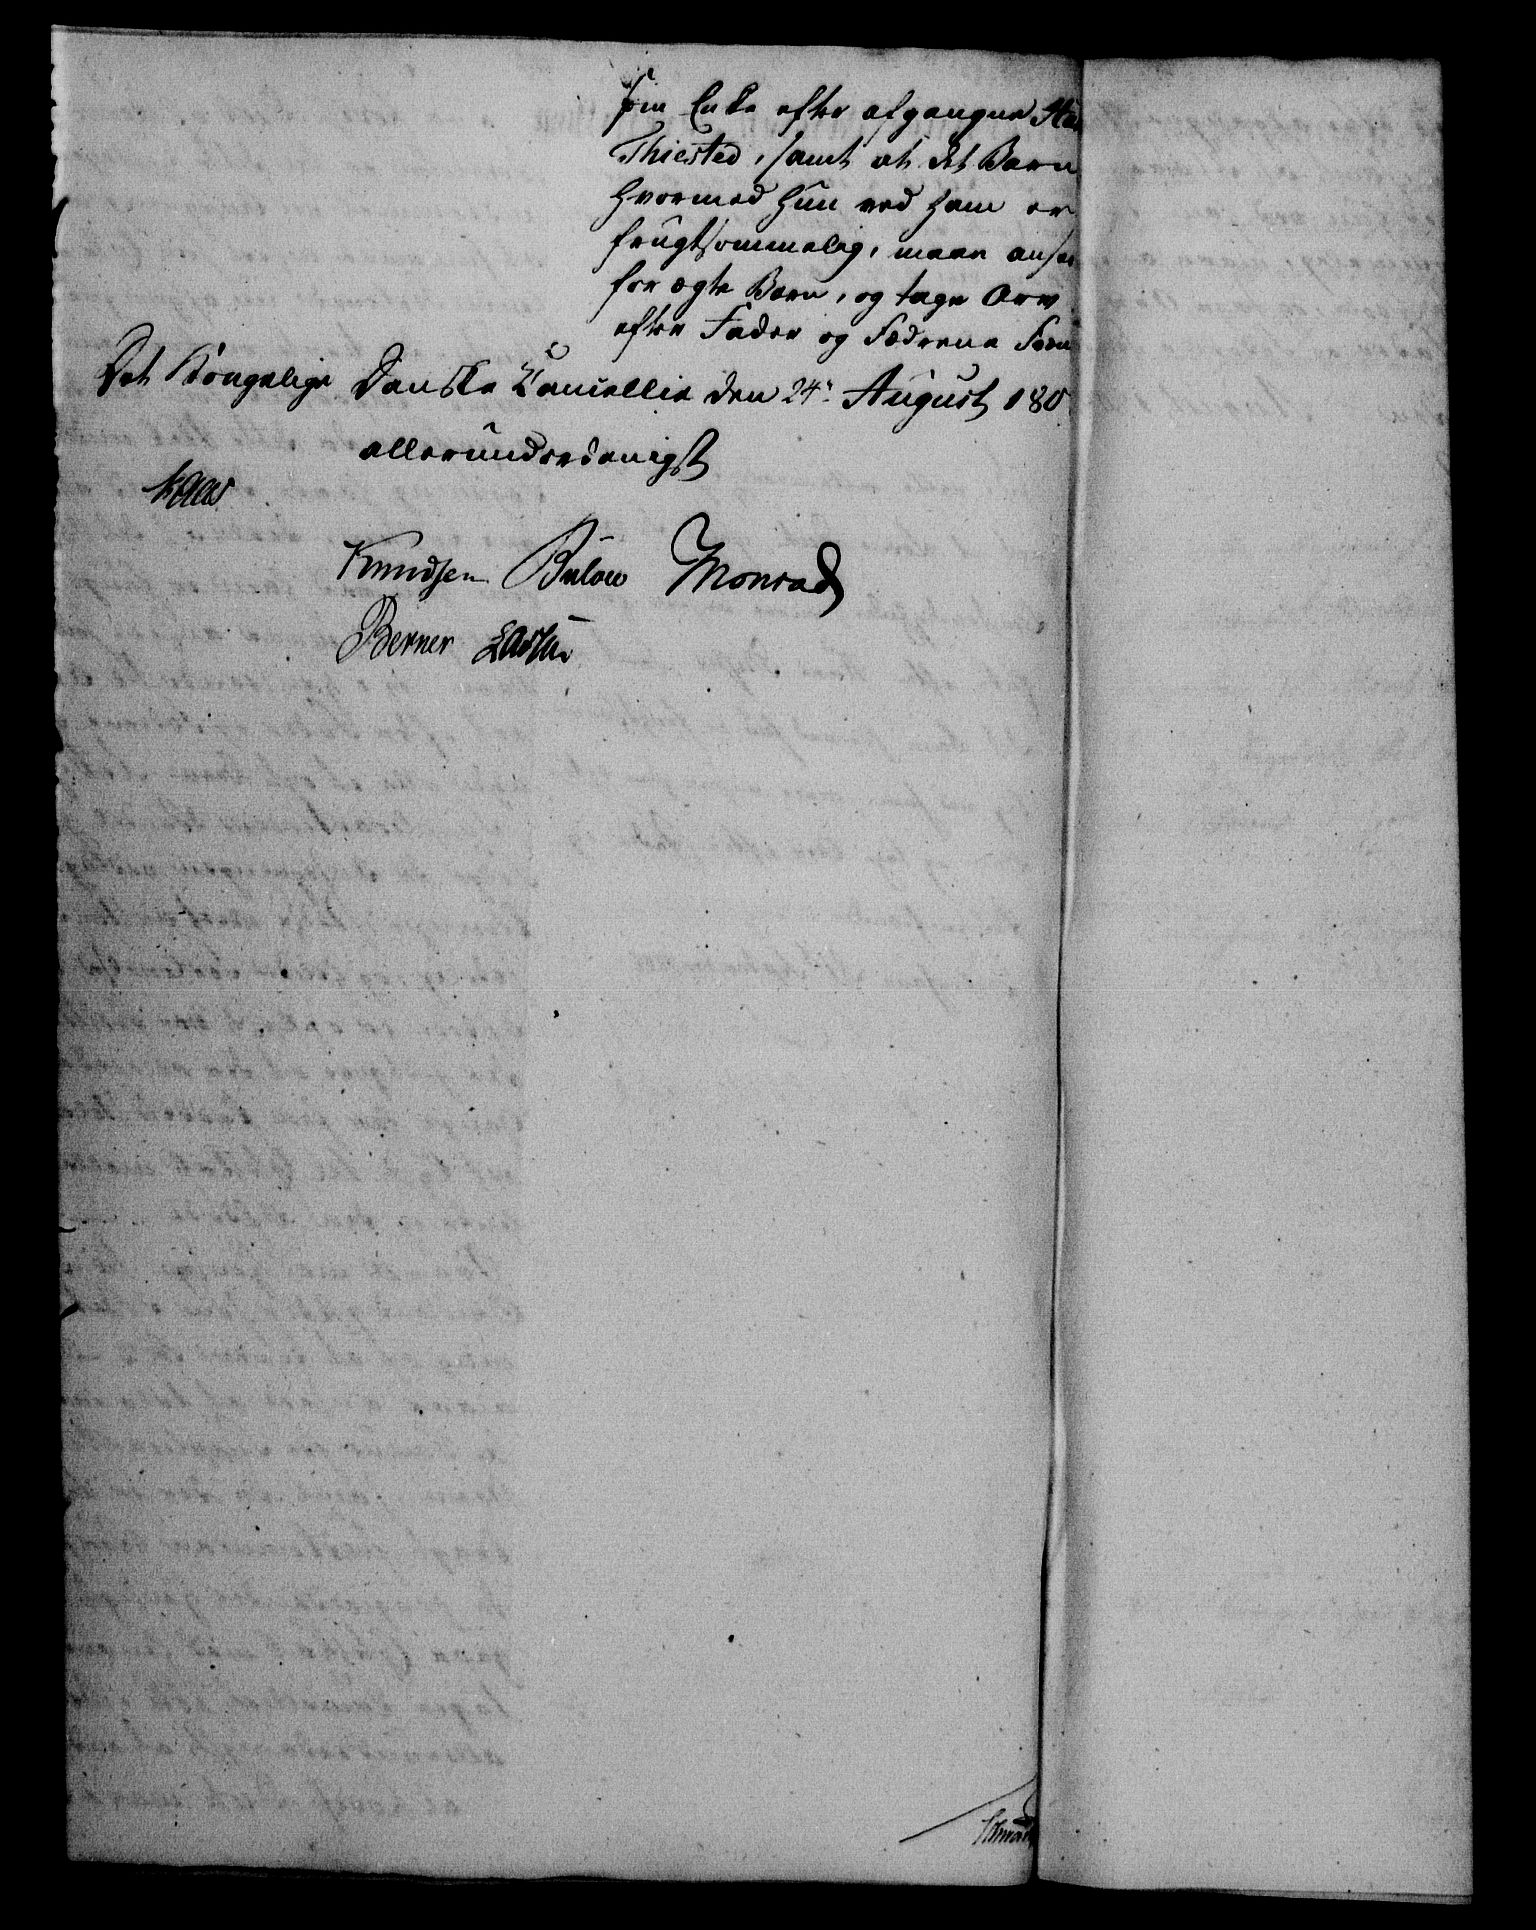 som Enke efter afgangne
Thiested, samt at det Barn
hvormed hun ved ham er
frugtsommelig, maae anse
for ægte Barn, og tage Arv
efter Fader og Fædrene
Det Kongelige Danske Cancellie den 24de August 180
allerunderdanigst
Kaas
Knudsen Bülow Monrad
Berner Lassen